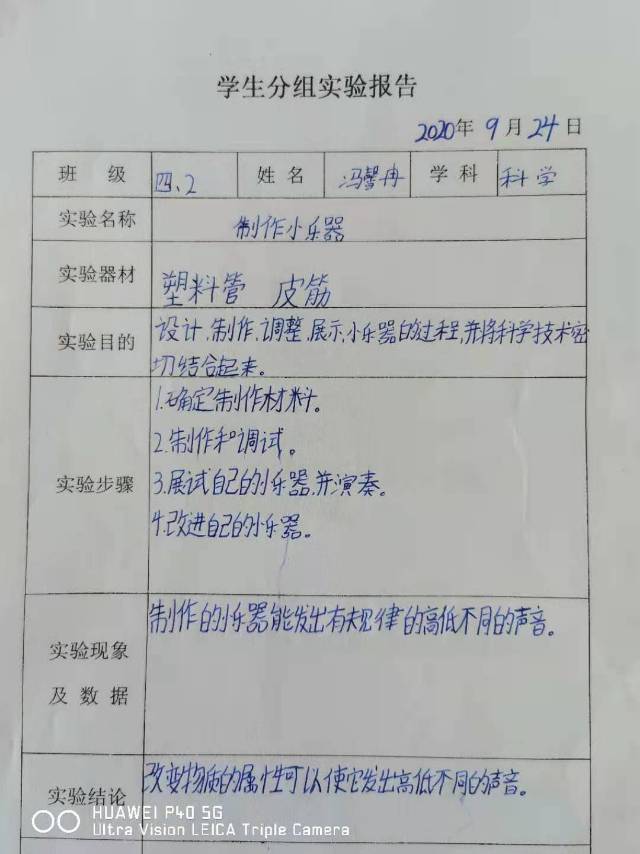 学生分组实验报告
2020年 9月 24日
班 级 四、2 姓 名 冯馨冉 学 科 科学
实验名称 制作小乐器
实验器材 塑料管 皮筋
实验目的 设计、制作、调整、展示、小乐器的过程,并将科学技术密
切结合起来。
1.确定制作材料。
2.制作和调试。
实验步骤 3.展试自己的小乐器,并演奏。
4.改进自己的小乐器。
制作的小乐器能发出有规律的高低不同的声音。
实验现象
及 数 据
实验结论 改变物质的属性可以使它发出高低不同的声音。
HUAWEI P40 5G
Ultra Vision LEICA Triple Camera